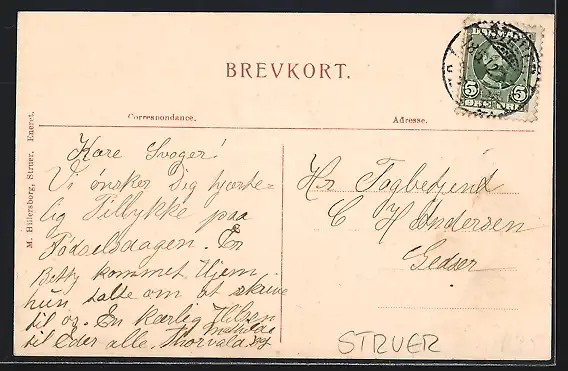 BREVKORT.
Correspondance.
Adresse.
M. Hillersborg, Struer. Eneret.
DANMARK
5 5
ØRE
STRUER
Kære Svoger!
Vi ønsker Dig hjærte-
lig Tillykke paa
Fødselsdagen. Er
Betty kommet Hjem,
hun talte om at skrive
til os. En kærlig Hilsen
til eder alle. Thorvald og
Mathilde
Hr Togbetjent
C H Andersen
Gedser
STRUER